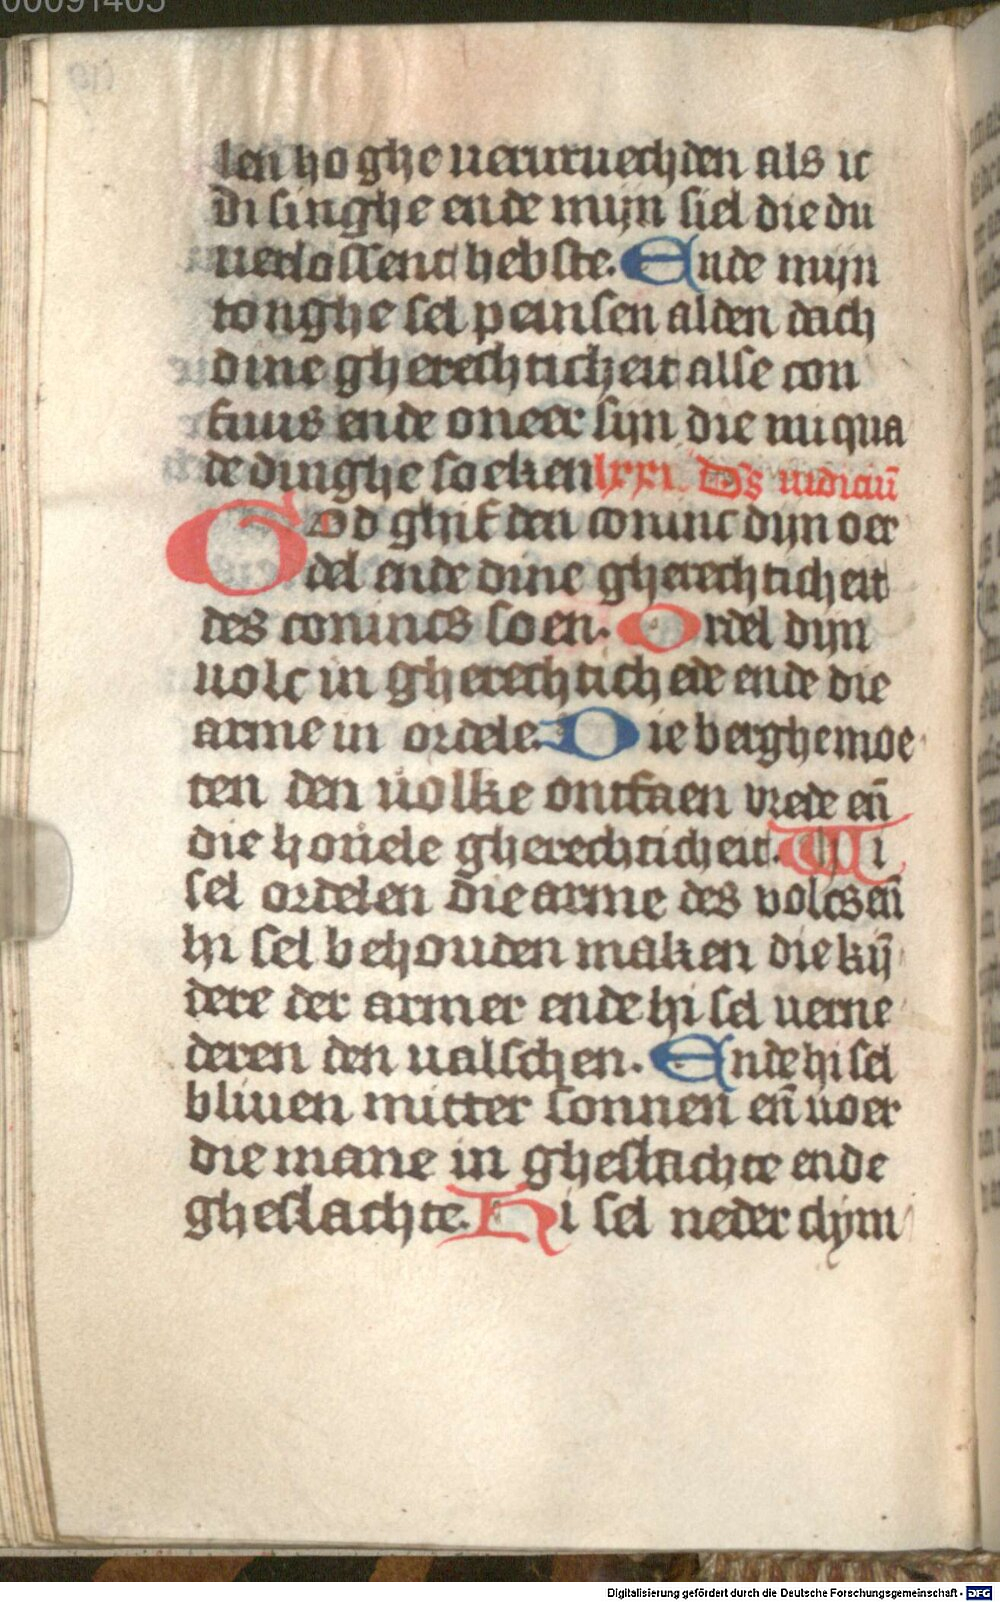 00091405
len hoghe ueruruechden als ic
di singhe ende mijn siel die du
uerlossent hebste. Ende mijn
tonghe sel peinsen alden dach
dine gherechticheit alse con
fuus ende oneer sijn die mi qua
de dinghe soeken lxxi. Ds iudiciū
God ghif den coninc dijn oer
del ende dine gherechticheit
des conincs soen. Ordel dijn
uolc in gherechtichede ende die
arme in ordele. Die berghe moe
ten den uolke ontfaen vrede eñ
die houele gherechticheit. Hi
sel ordelen die arme des volcs eñ
hi sel behouden maken die kij̄
dere der armer ende hi sel uerne
deren den ualschen. Ende hi sel
bliuen mitter sonnen eñ uoer
die mane in gheslachte ende
gheslachte. Hi sel neder clym
Digitalisierung gefördert durch die Deutsche Forschungsgemeinschaft - DFG